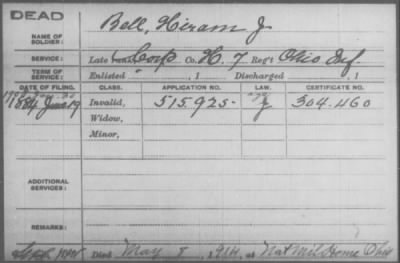 DEAD
NAME OF SOLDIER: Bell, Hiram J
SERVICE: Late Corp Co. H, 7 Reg't Ohio Inf.
TERM OF SERVICE: Enlisted , 1 Discharged , 1
DATE OF FILING. CLASS. APPLICATION NO. LAW. CERTIFICATE NO.
1884 June 19 Invalid, 515.925 304.460
Widow,
Minor,
ADDITIONAL SERVICES:
REMARKS:
Died May 8, 1914, at Nat Mil Home Ohio